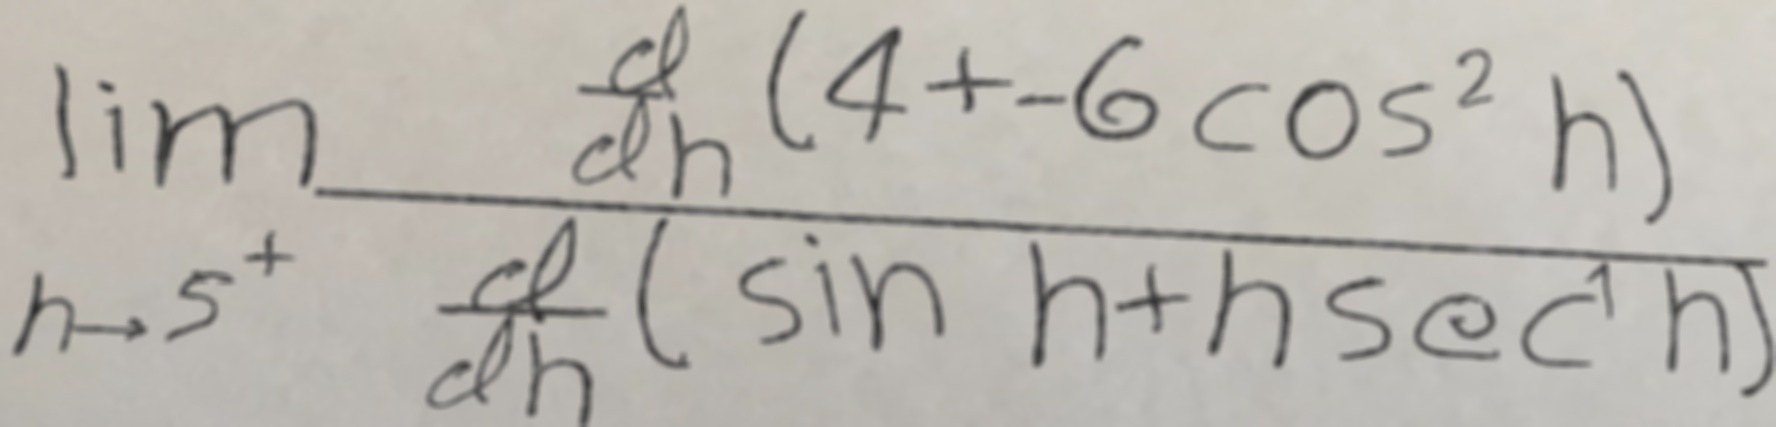 \lim_{h \to s^+} \frac{\frac{d}{dh}(4+-6\cos^2 h)}{\frac{d}{dh}(\sin h+h\sec^1 h)}